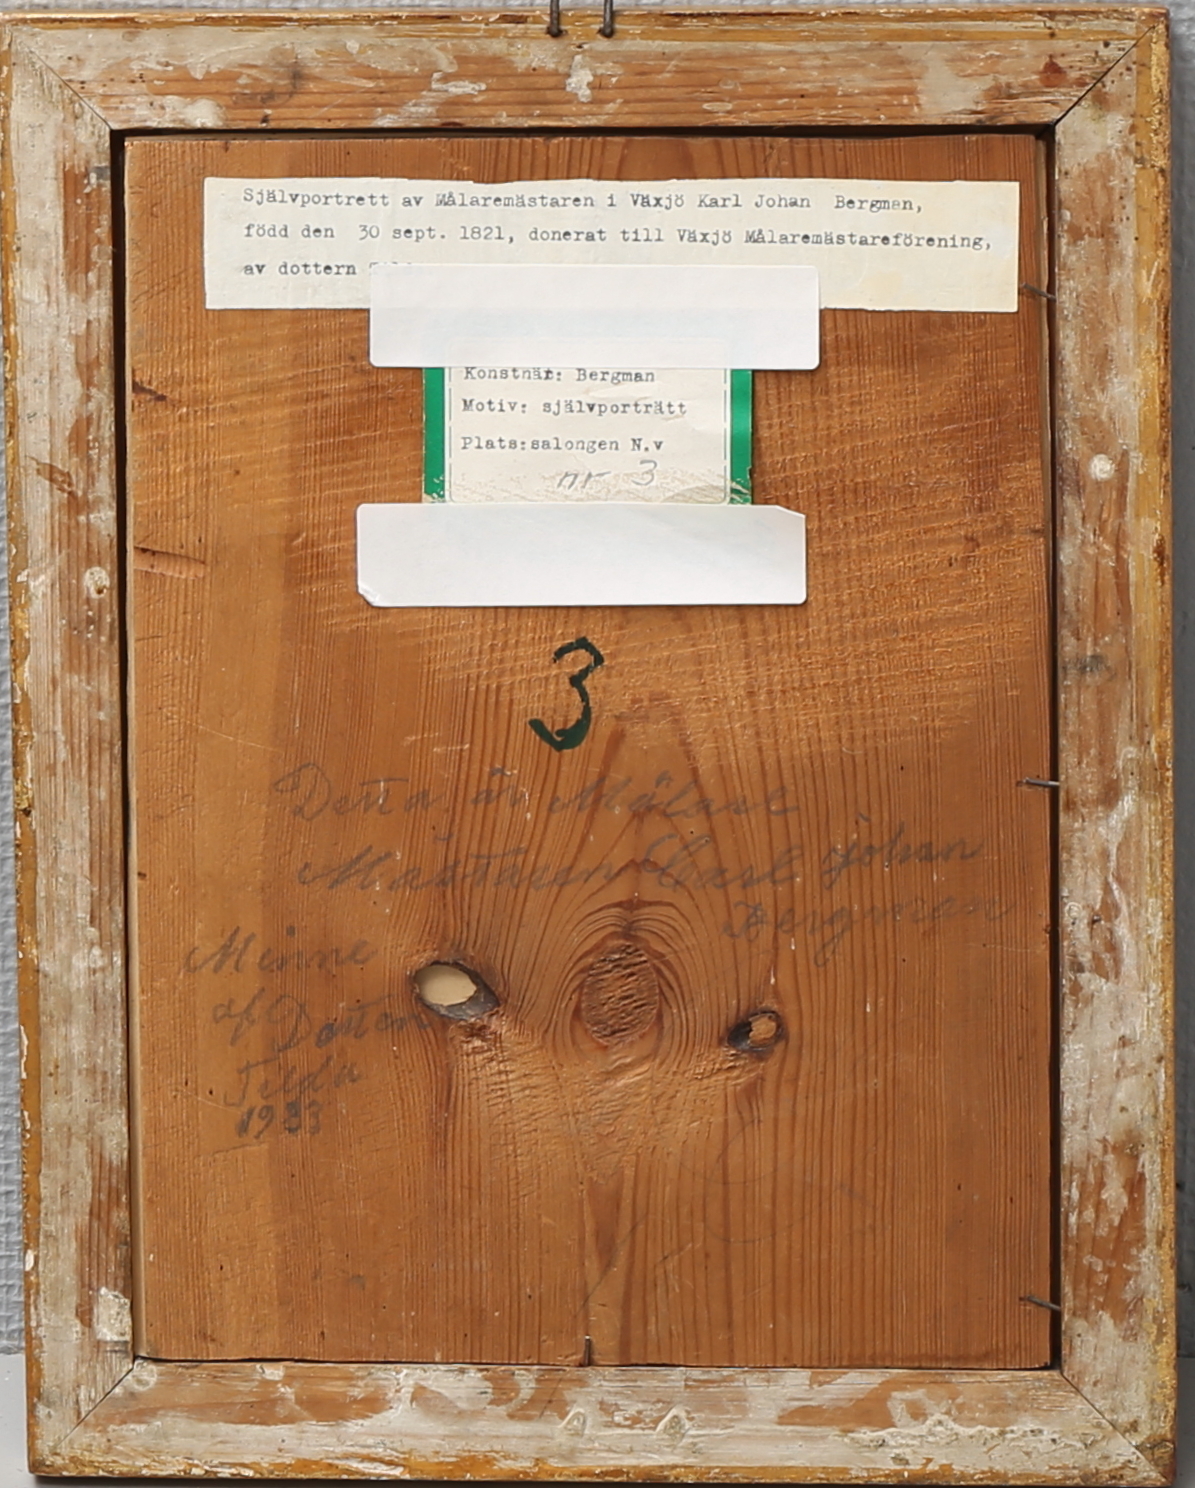 Självportrett av Målaremästaren i Växjö Karl Johan Bergman,
född den 30 sept. 1821, donerat till Växjö Målaremästareförening,
av dottern
Konstnär: Bergman
Motiv: självporträtt
Plats:salongen N.v
nr 3
3
Detta är Målare
Mästaren Carl Johan
Bergman
Minne
af Dottern
Tilda
1933